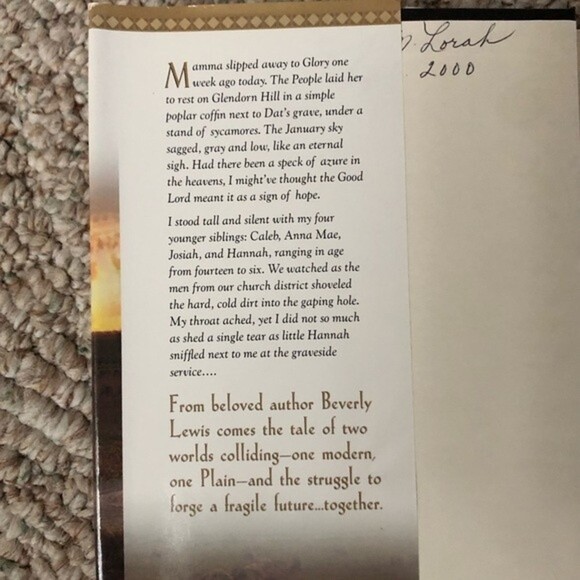 Mamma slipped away to Glory one
week ago today. The People laid her
to rest on Glendorn Hill in a simple
poplar coffin next to Dat's grave, under a
stand of sycamores. The January sky
sagged, gray and low, like an eternal
sigh. Had there been a speck of azure in
the heavens, I might've thought the Good
Lord meant it as a sign of hope.
I stood tall and silent with my four
younger siblings: Caleb, Anna Mae,
Josiah, and Hannah, ranging in age
from fourteen to six. We watched as the
men from our church district shoveled
the hard, cold dirt into the gaping hole.
My throat ached, yet I did not so much
as shed a single tear as little Hannah
sniffled next to me at the graveside
service....
From beloved author Beverly
Lewis comes the tale of two
worlds colliding—one modern,
one Plain—and the struggle to
forge a fragile future...together.
Lorah
2000